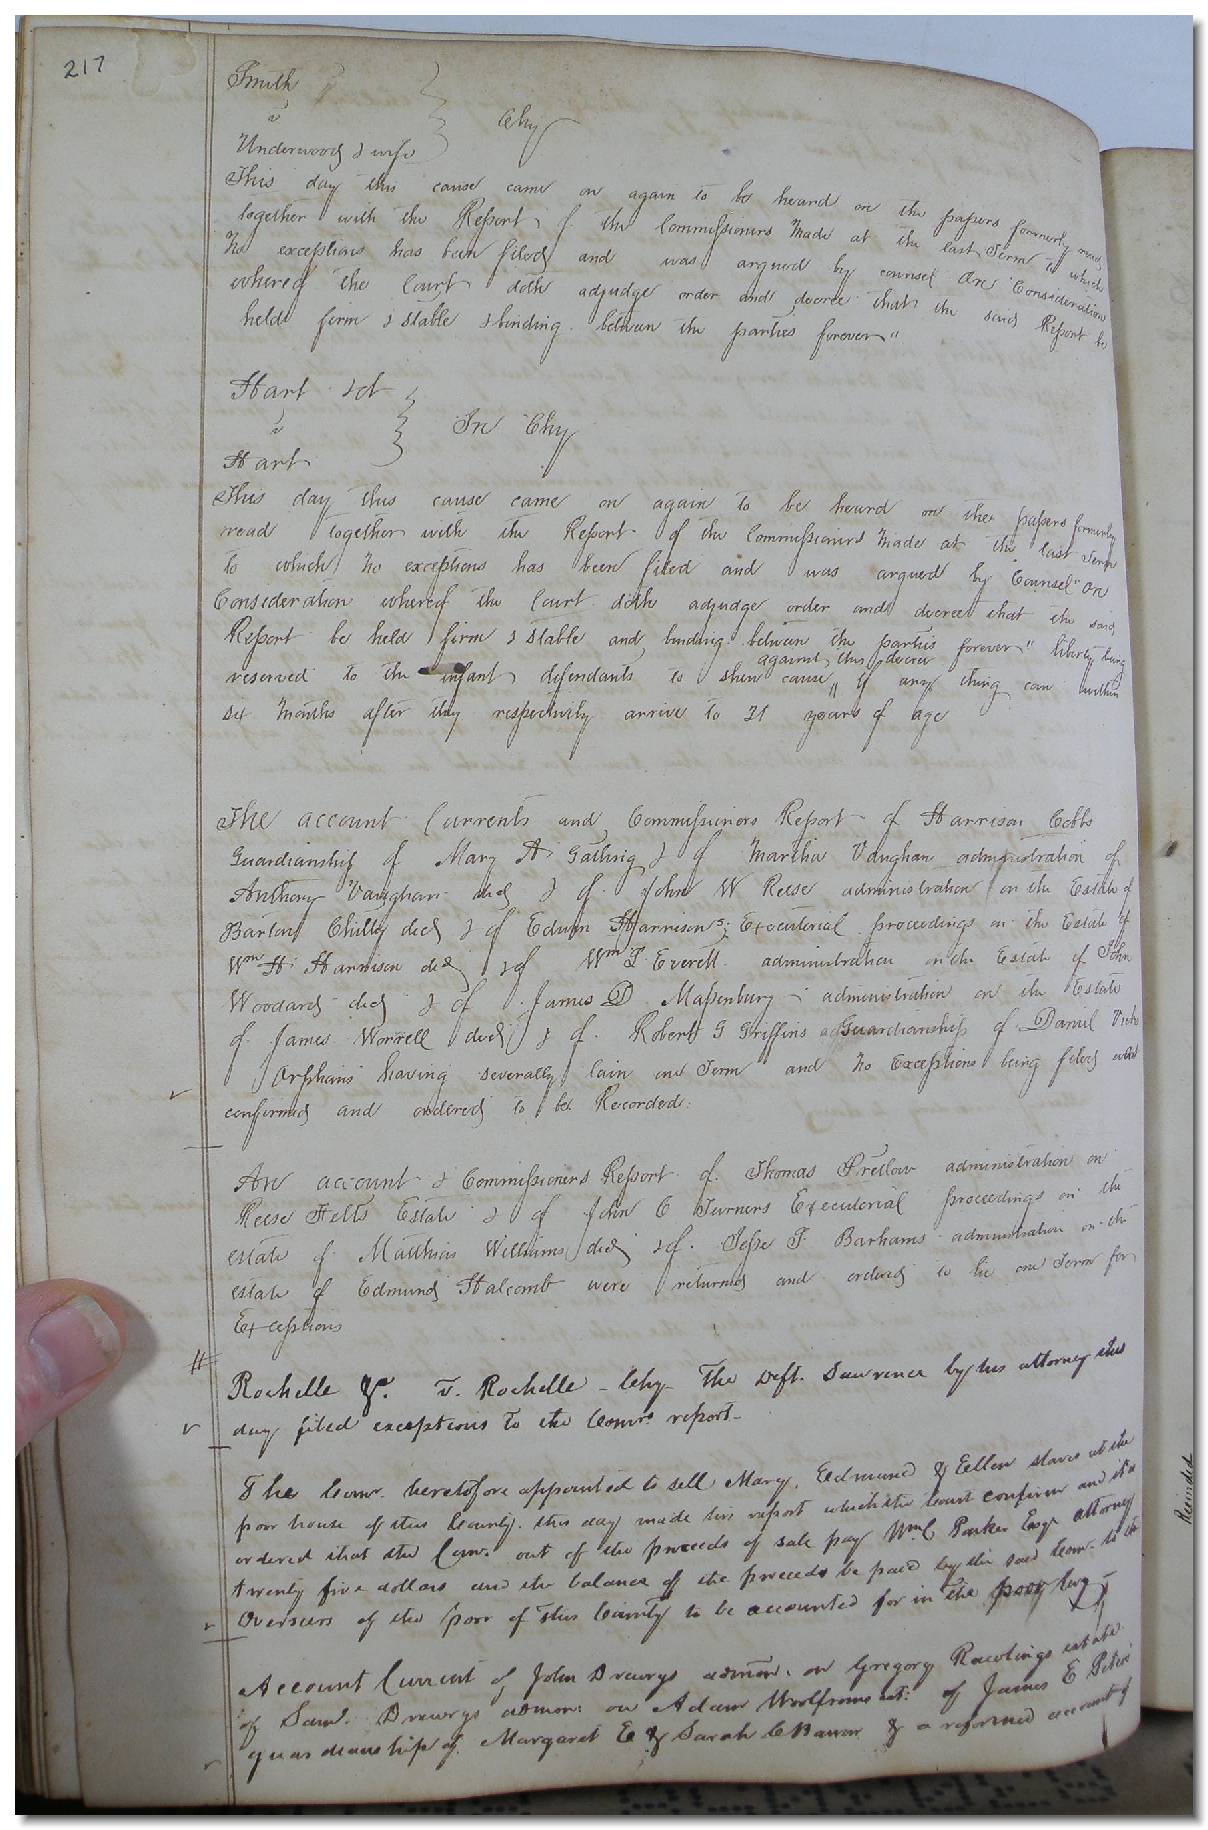 217
Smith
v
Underwood & wife
Chy
This day this cause came on again to be heard on the papers formerly read
together with the Report of the Commissioners Made at the last Term to which
No exceptions has been filed and was argued by counsel On Consideration
whereof the Court doth adjudge order and decree that the said Report be
held firm & stable & binding between the parties forever"
Hart &ct
v
Hart
In Chy
This day this cause came on again to be heard on the papers formerly
read together with the Report of the Commissioners Made at the last Term
to which No exceptions has been filed and was argued by Counsel On
Consideration whereof the Court doth adjudge order and decree that the said
Report be held firm & stable and binding between the parties forever" liberty being
against this decree
reserved to the infant defendants to shew cause if any thing can within
six Months after they respectively arrive to 21 years of age
The account Currents and Commissioners Report of Harrison Cobbs
Guardianship of Mary A Gathing & of Martha Vaughan administration of
Anthony Vaughan decd & of John W Reese administration on the Estate of
Barton decd & of Edwin Harrisons Executorial proceedings on the Estate of
Wm H Harrison decd & of Wm T Everett administration on the Estate of John
Woodard decd & of James D Massenburg administration on the Estate
of James Worrell decd & of Robert G Griffins Guardianship of Daniel
Orphans having severally lain one Term and No Exceptions being filed was
confirmed and ordered to be Recorded
An account & Commissioners Report of Thomas Pretlow administration on
Reese Felts Estate & of John C Turners Executorial proceedings on the
estate of Matthias Williams decd & of Jesse T Barhams administration on the
estate of Edmund Halcomb were returned and ordered to lie one Term for
Exceptions
Rochelle &c. v. Rochelle - Chy The Deft. Lawrence by his attorney this
day filed exceptions to the Comrs report-
The Comr. heretofore appointed to sell Mary, Edmund & Ellen slaves at the
poor house of this County. this day made his report which the Court confirm and it is
ordered that the Comr. out of the proceeds of sale pay Wm C Parker Esqr attorney
twenty five dollars and the balance of the proceeds be paid by the said Comr. to the
Overseers of the poor of this County to be accounted for in the poor levy
Account Current of John Drewrys admon. on Gregory Rawlings estate
of Saml. Drewrys admon. on Adam Woolfroms est: of James E Peters
guardianship of Margaret E & Sarah C Barron & a reformed account of
Recinded